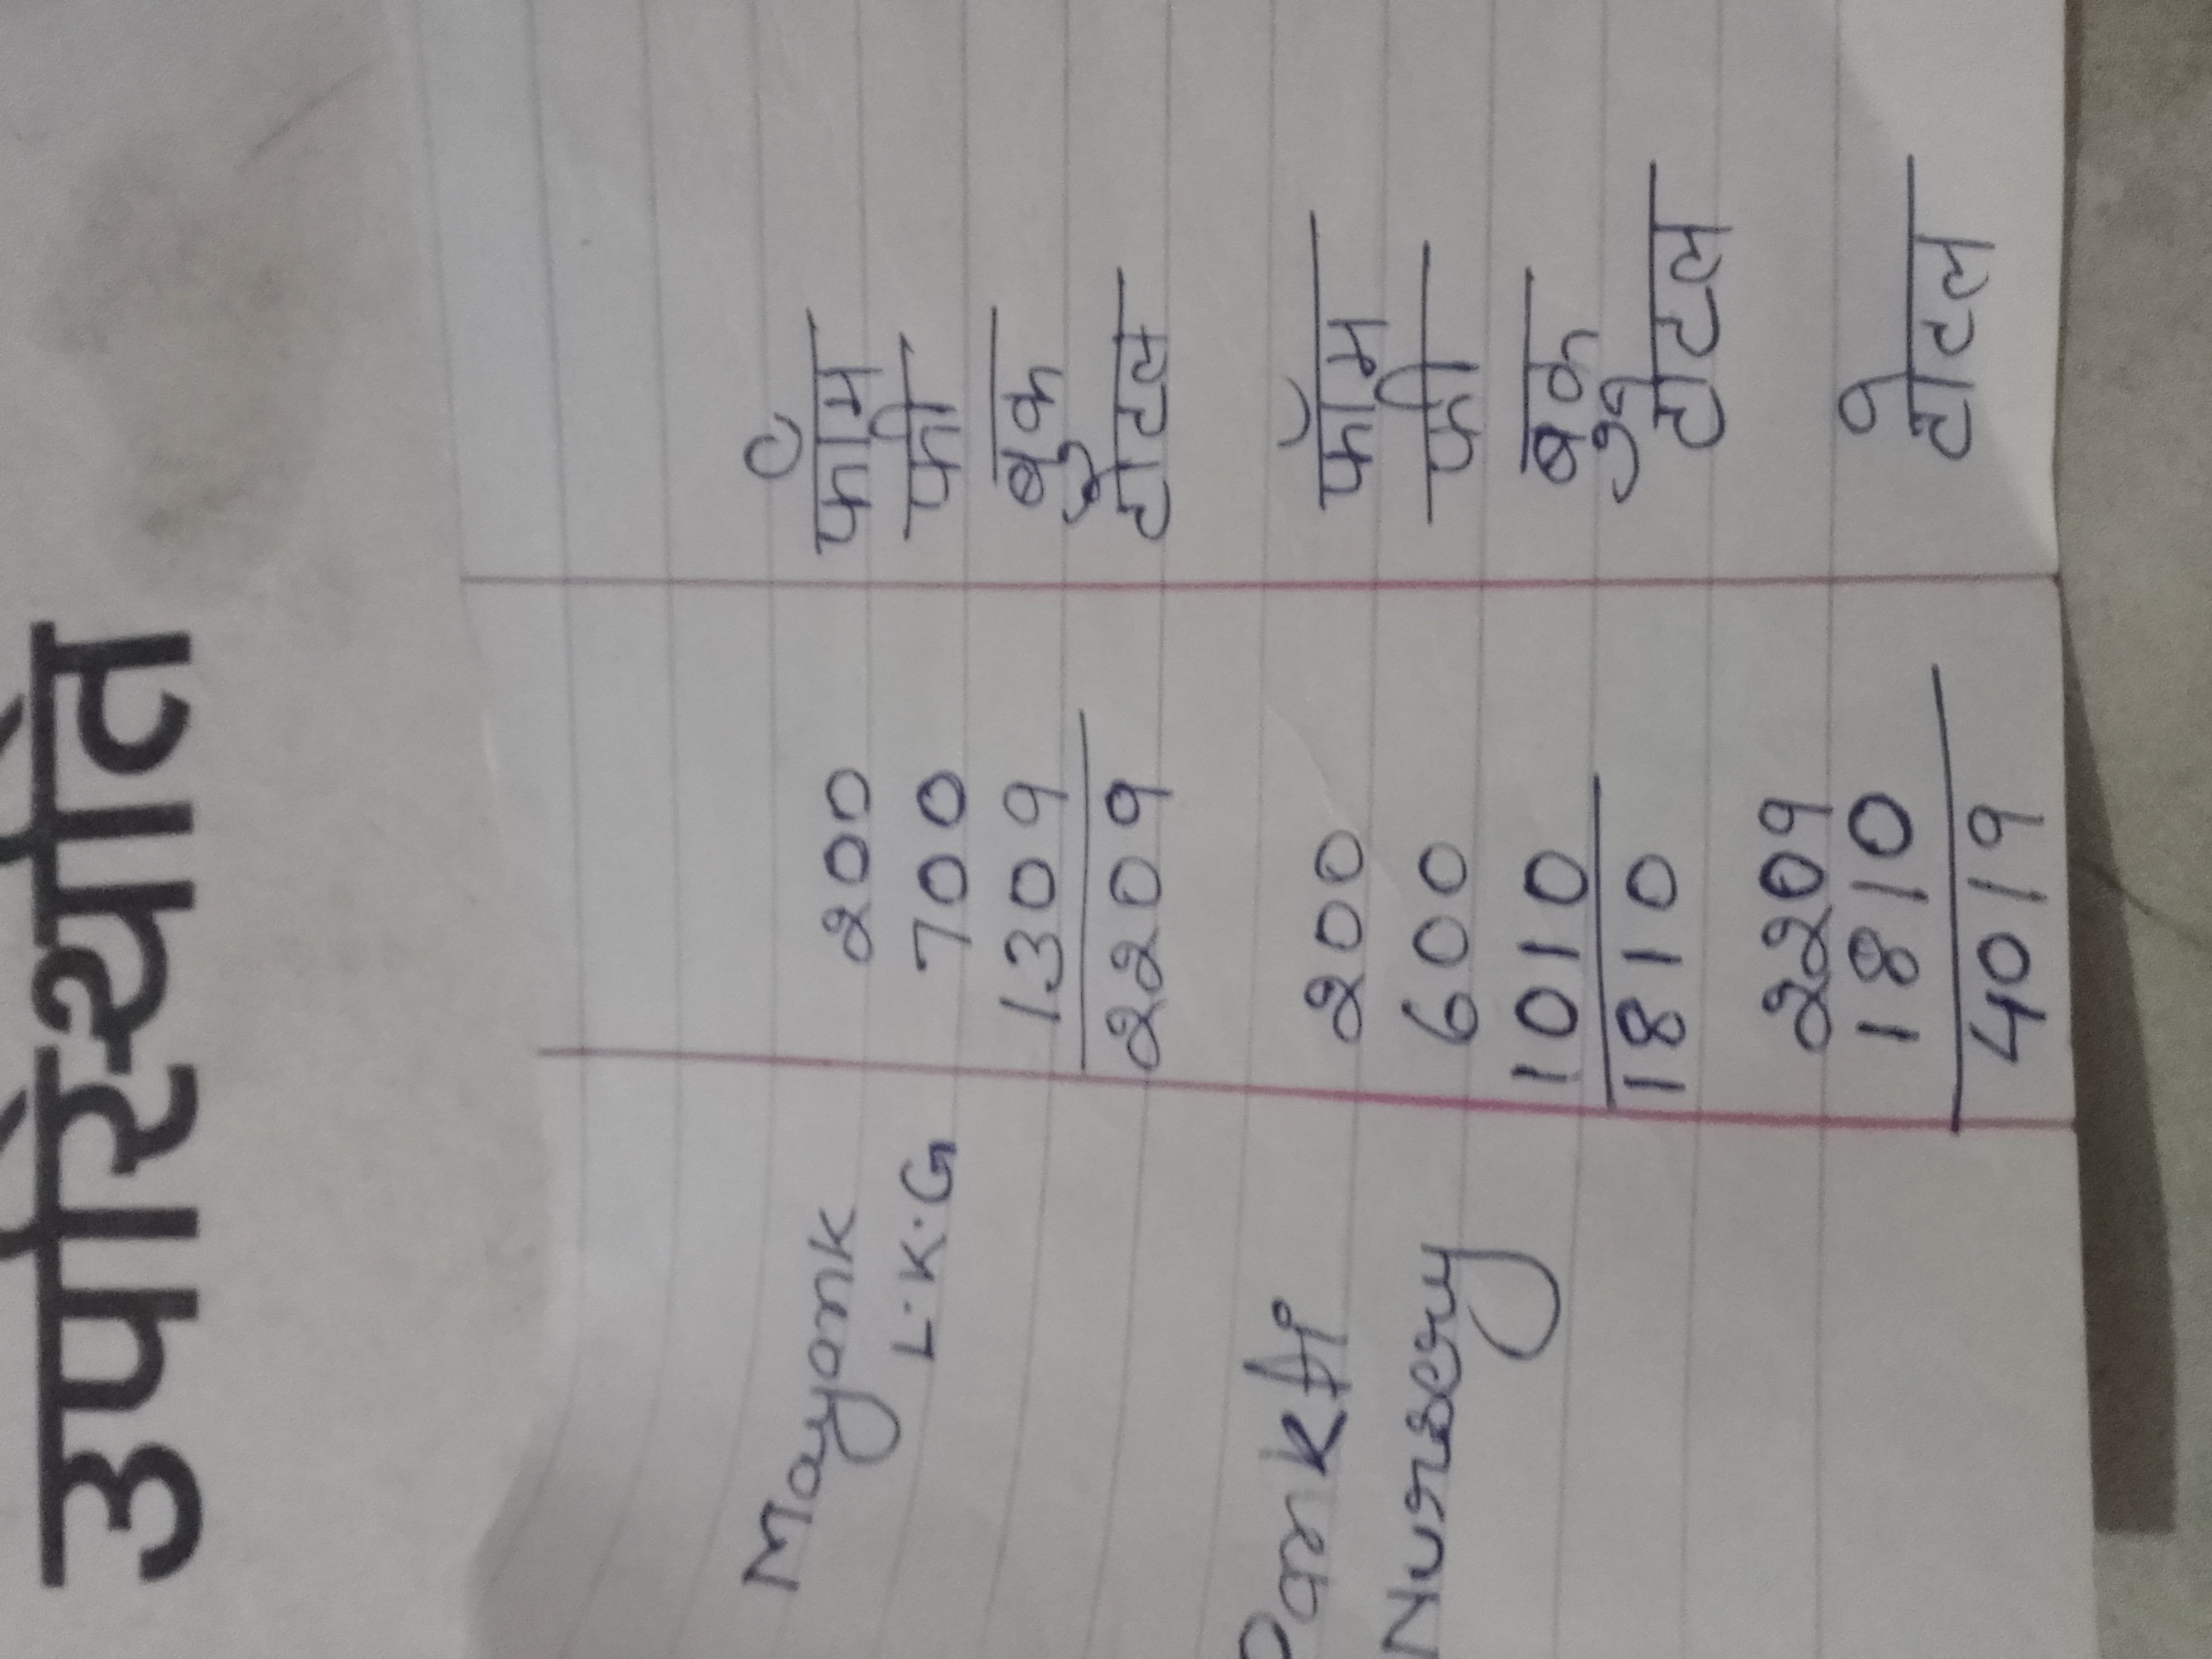 उपस्थिति
Mayank 200 फॉर्म
L.K.G 700 फी
1309 बुक
2209 टोटल
200 फॉर्म
Nursery 600 फी
1010 बुक
1810 टोटल
2209
1810 टोटल
4019